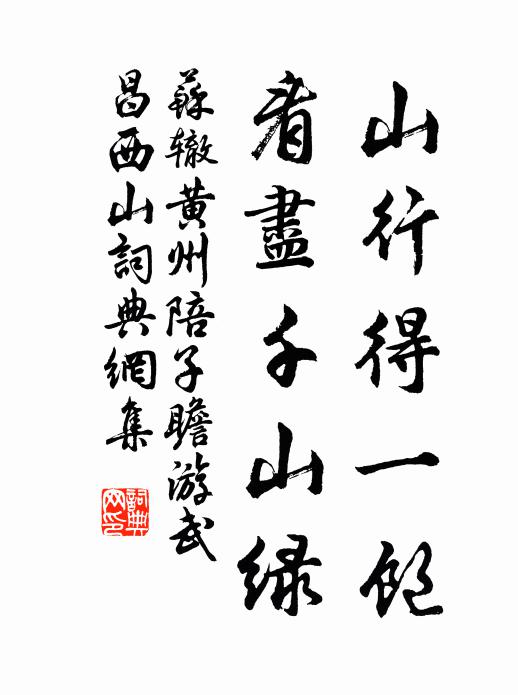 山行得一飽
看盡千山绿
蘇辙黄州陪子瞻游武
昌西山詞典網集
詞典
网印